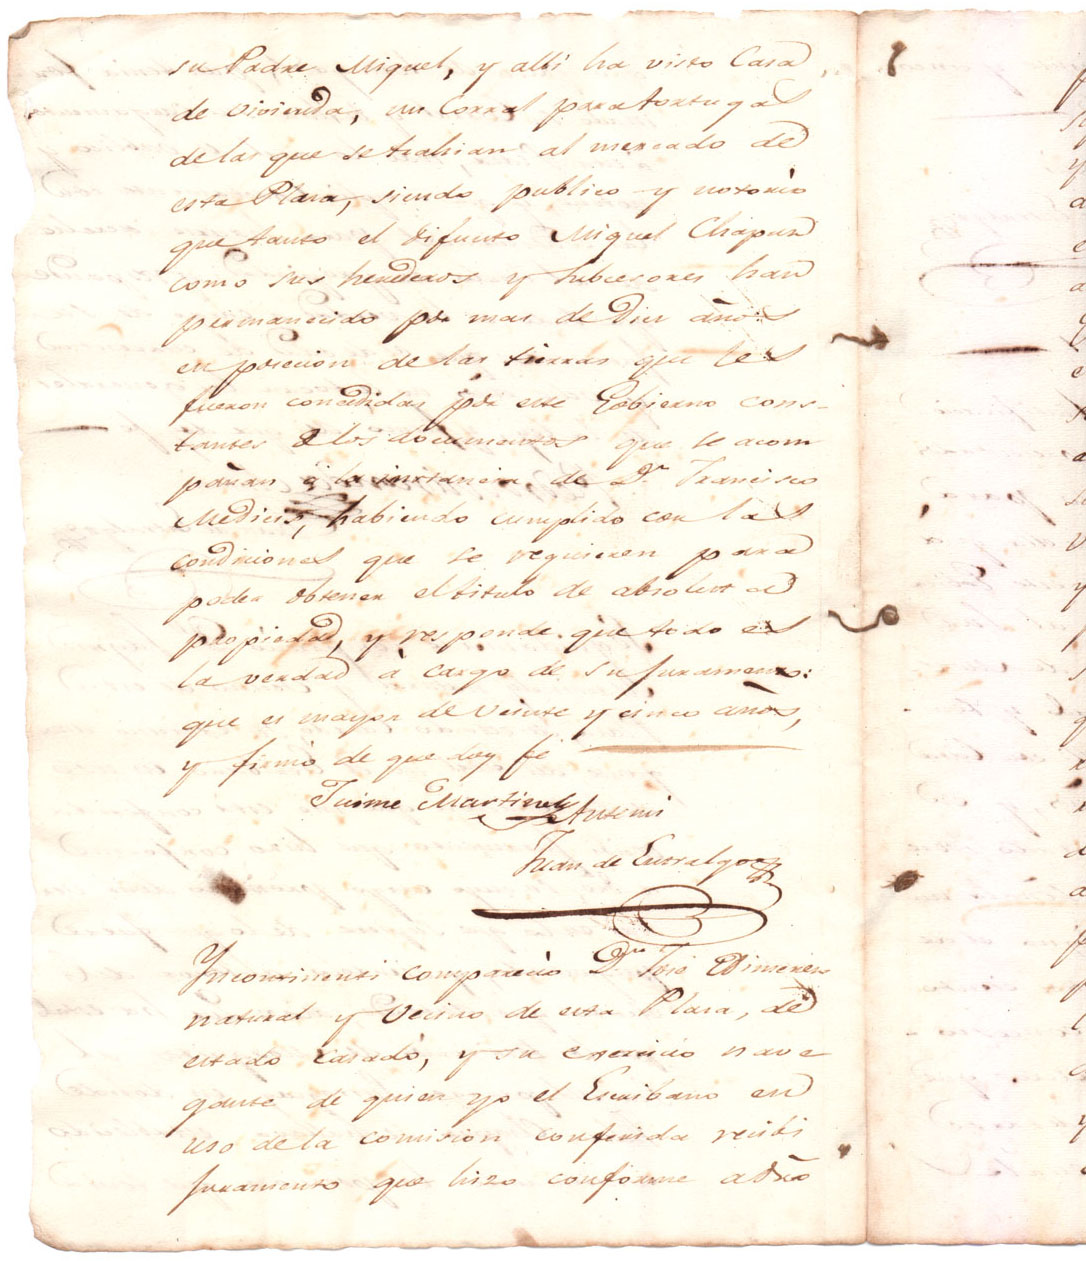 su Padre Miguel, y alli ha visto Casa
de vivienda, un Corral para tortugas
de las que se trahian al mercado de
esta Plaza, siendo publico y notorio
que tanto el difunto Miguel Chapuz
como sus herederos y subcesores han
permanecido por mas de Diez años
en posecion de las tierras que les
fueron concedidas por este Gobierno cons-
tantes à los documentos que se acom
pañan á la instancia de Dn. Francisco
Medicis, habiendo cumplido con las
condiciones que se requieren para
poder obtener el titulo de absoluta
propiedad, y responde que todo es
la verdad à cargo de su juramento:
que es mayor de veinte y cinco años,
y firmó de que doy fé
Jaime Martinely
Antemi
Juan de Entralgo
Yncontinenti comparecio Dn. José Ximenes
natural y Vecino de esta Plaza, de
estado casado, y su exercicio nave
gante de quien yo el Escribano en
uso de la comision conferida recibi
juramento que hizo conforme a dro